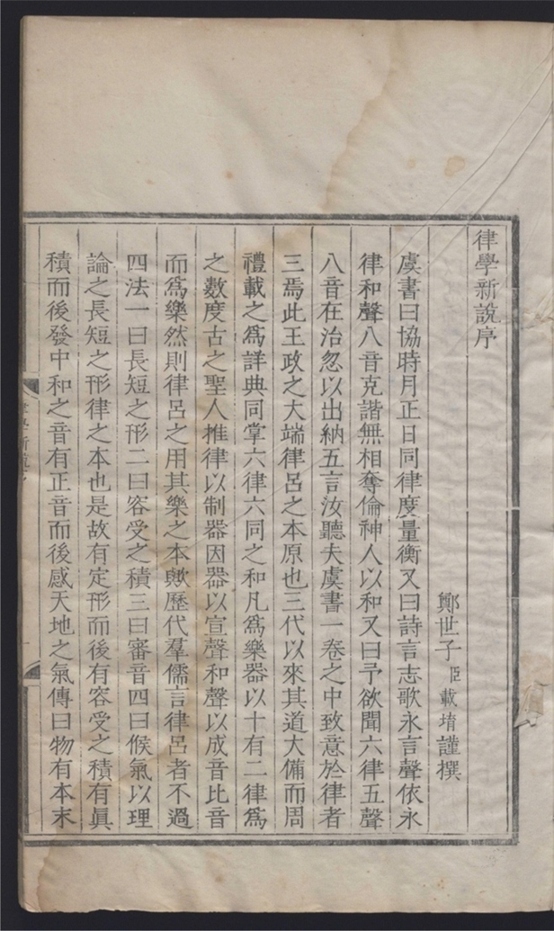 律學新說序
鄭世子臣載堉謹撰
虞書曰協時月正日同律度量衡又曰詩言志歌永言聲依永
律和聲八音克諧無相奪倫神人以和又曰予欲聞六律五聲
八音在治忽以出納五言汝聽夫虞書一卷之中致意於律者
三焉此王政之大端律呂之本原也三代以來其道大備而周
禮載之為詳典同掌六律六同之和凡為樂器以十有二律為
之數度古之聖人推律以制器因器以宣聲和聲以成音比音
而為樂然則律呂之用其樂之本歟歷代羣儒言律呂者不過
四法一曰長短之形二曰容受之積三曰審音四曰候氣以理
論之長短之形律之本也是故有定形而後有容受之積有眞
積而後發中和之音有正音而後感天地之氣傳曰物有本末